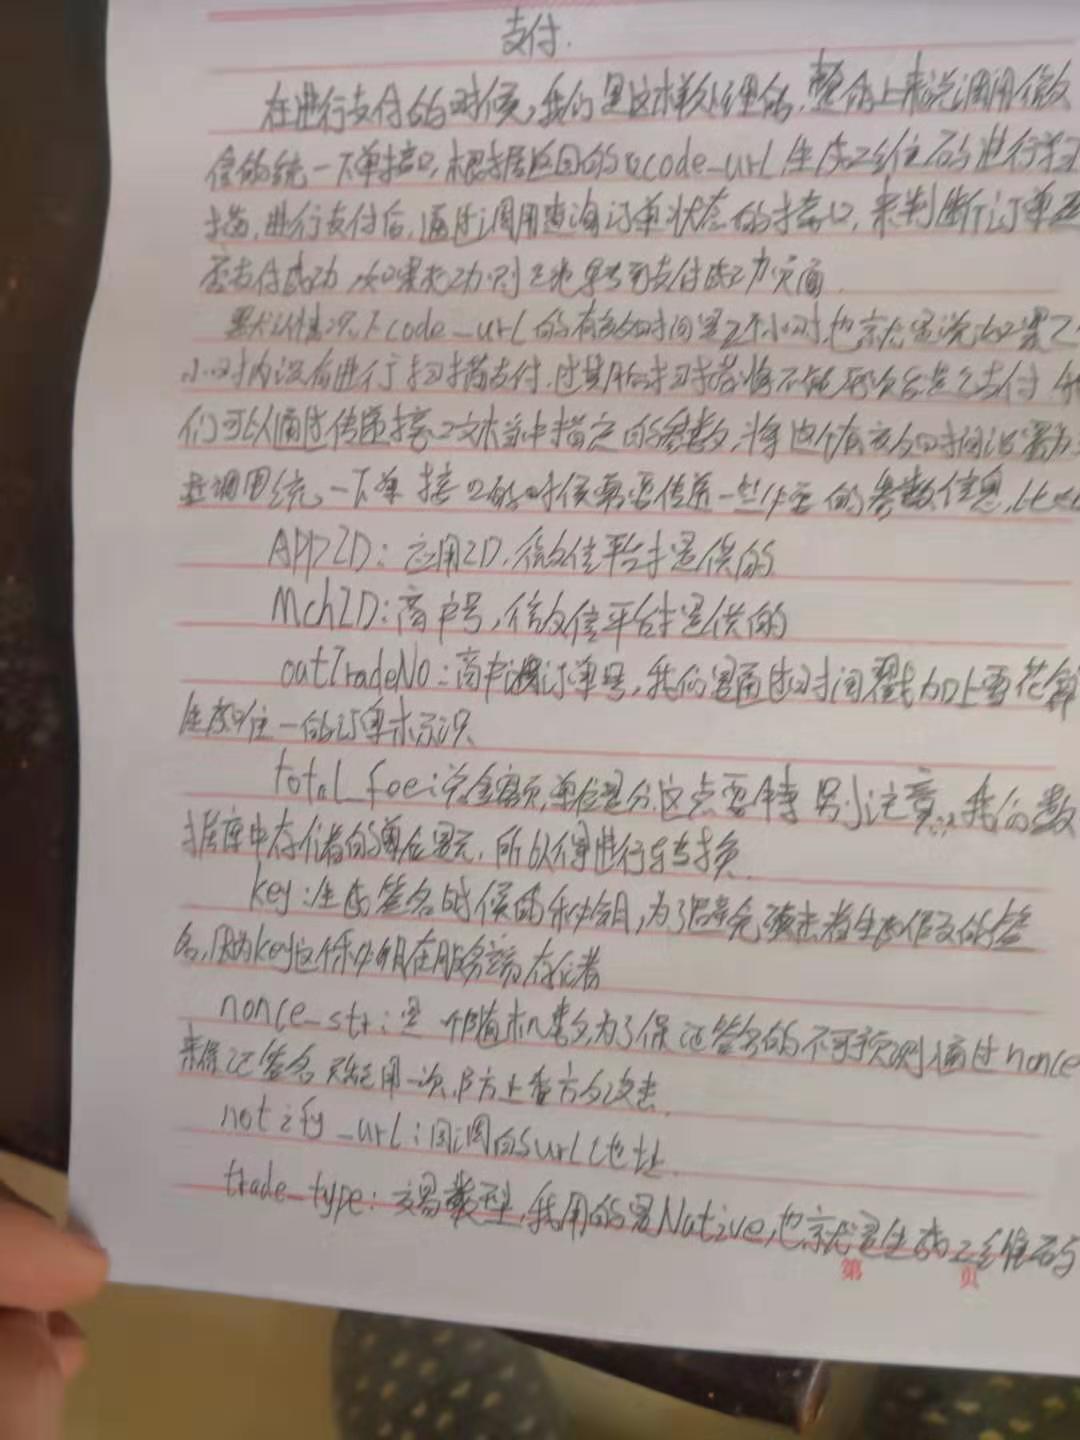 支付.
在进行支付的时候,我们是这样处理的,整体上来说调用微
信的统一下单接口,根据返回的code_url生成二维码进行扫
描,进行支付后,通过调用查询订单状态的接口,来判断订单是
否支付成功,如果成功则跳转到支付成功页面.
默认情况下code_url的有效时间是2个小时,也就是说如果2
小时内没有进行扫描支付,过期后扫描将不能再次发起支付,我
们可以通过传递接口文档中指定的参数,将这个有效时间设置为
在调用统一下单接口的时候需要传递一些必要的参数信息,比如
APPID:应用ID,微信平台提供的
MchID:商户号,微信平台提供的
outTradeNo:商户订单号,我们是通过时间戳加上雪花算
生成唯一的订单标识
total_fee:总金额,单位是分,这点要特别注意,我们数
据库中存储的单位是元,所以得进行转换.
key:生成签名时候的秘钥,为了避免攻击者生成修改的签
名,因为key这个秘钥在服务端存储着
nonce_str:是一个随机数,为了保证签名的不可预测,通过nonce
来保证签名只能用一次,防止重放攻击.
notify_url:回调的url地址.
trade_type:交易类型,我用的是Native,也就是生成二维码
第 页